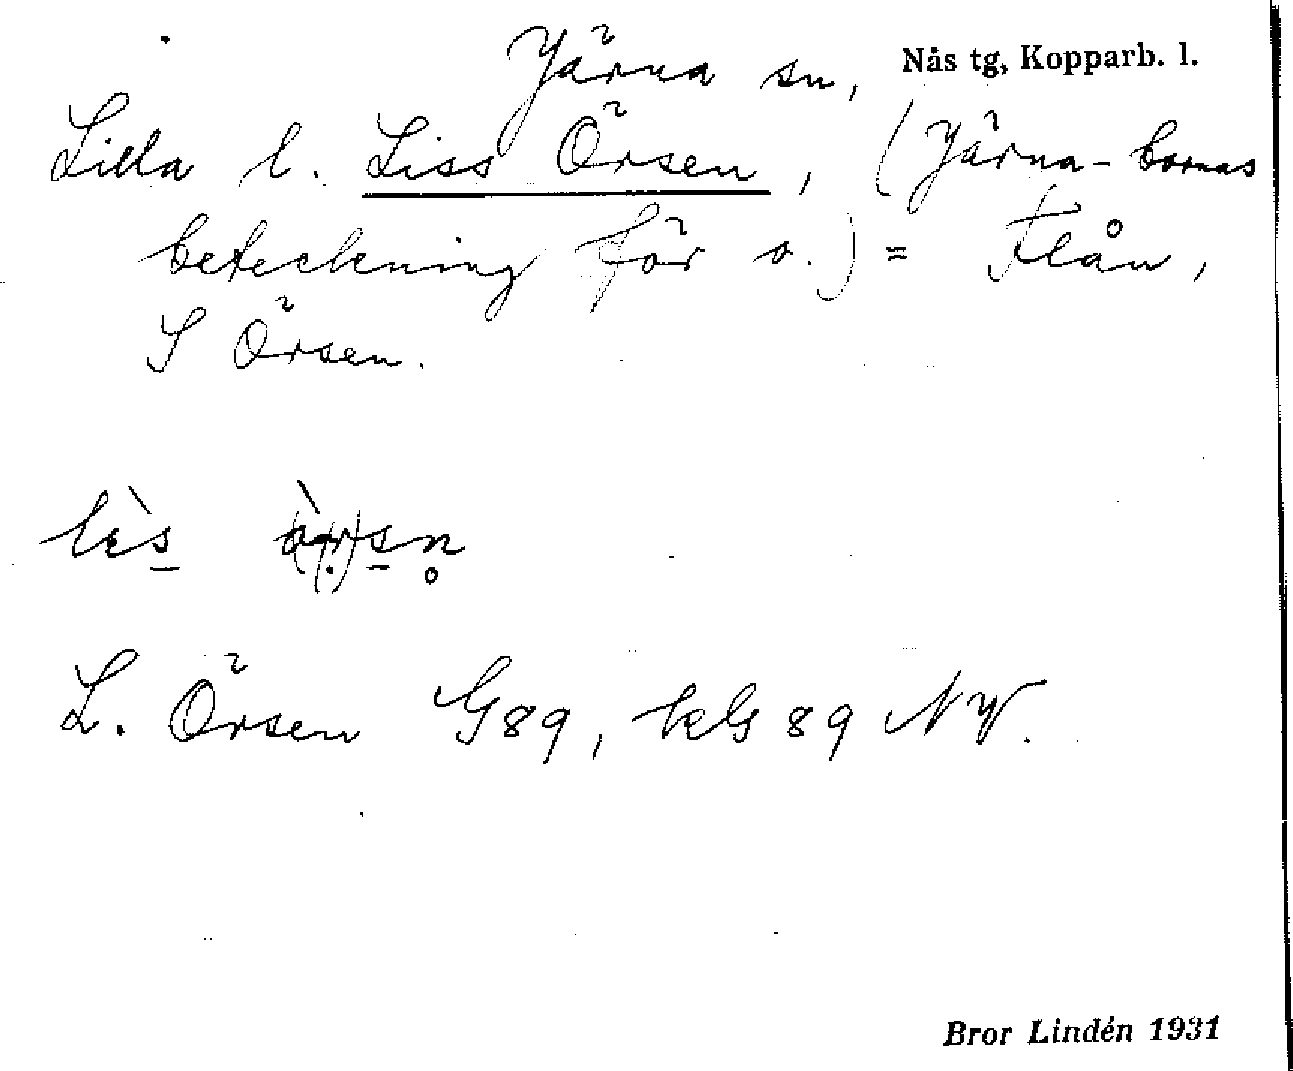 Järna sn, Nås tg, Kopparb. l.
Lilla l. Liss Örsen, (Järna-bornas
beteckning för s.) = Flån,
S Örsen.
L. Örsen G89, kG 89 NV.
Bror Lindén 1931